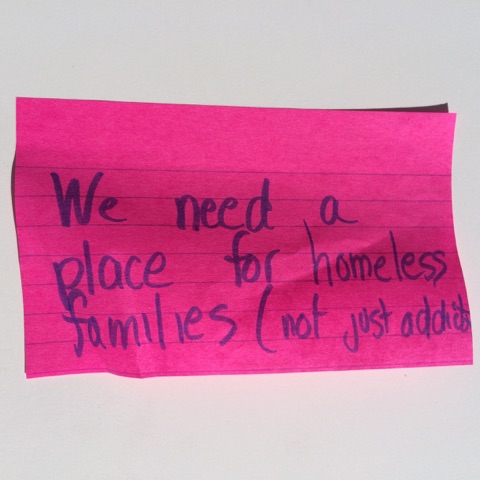 We need a
place for homeless
families (not just addicts